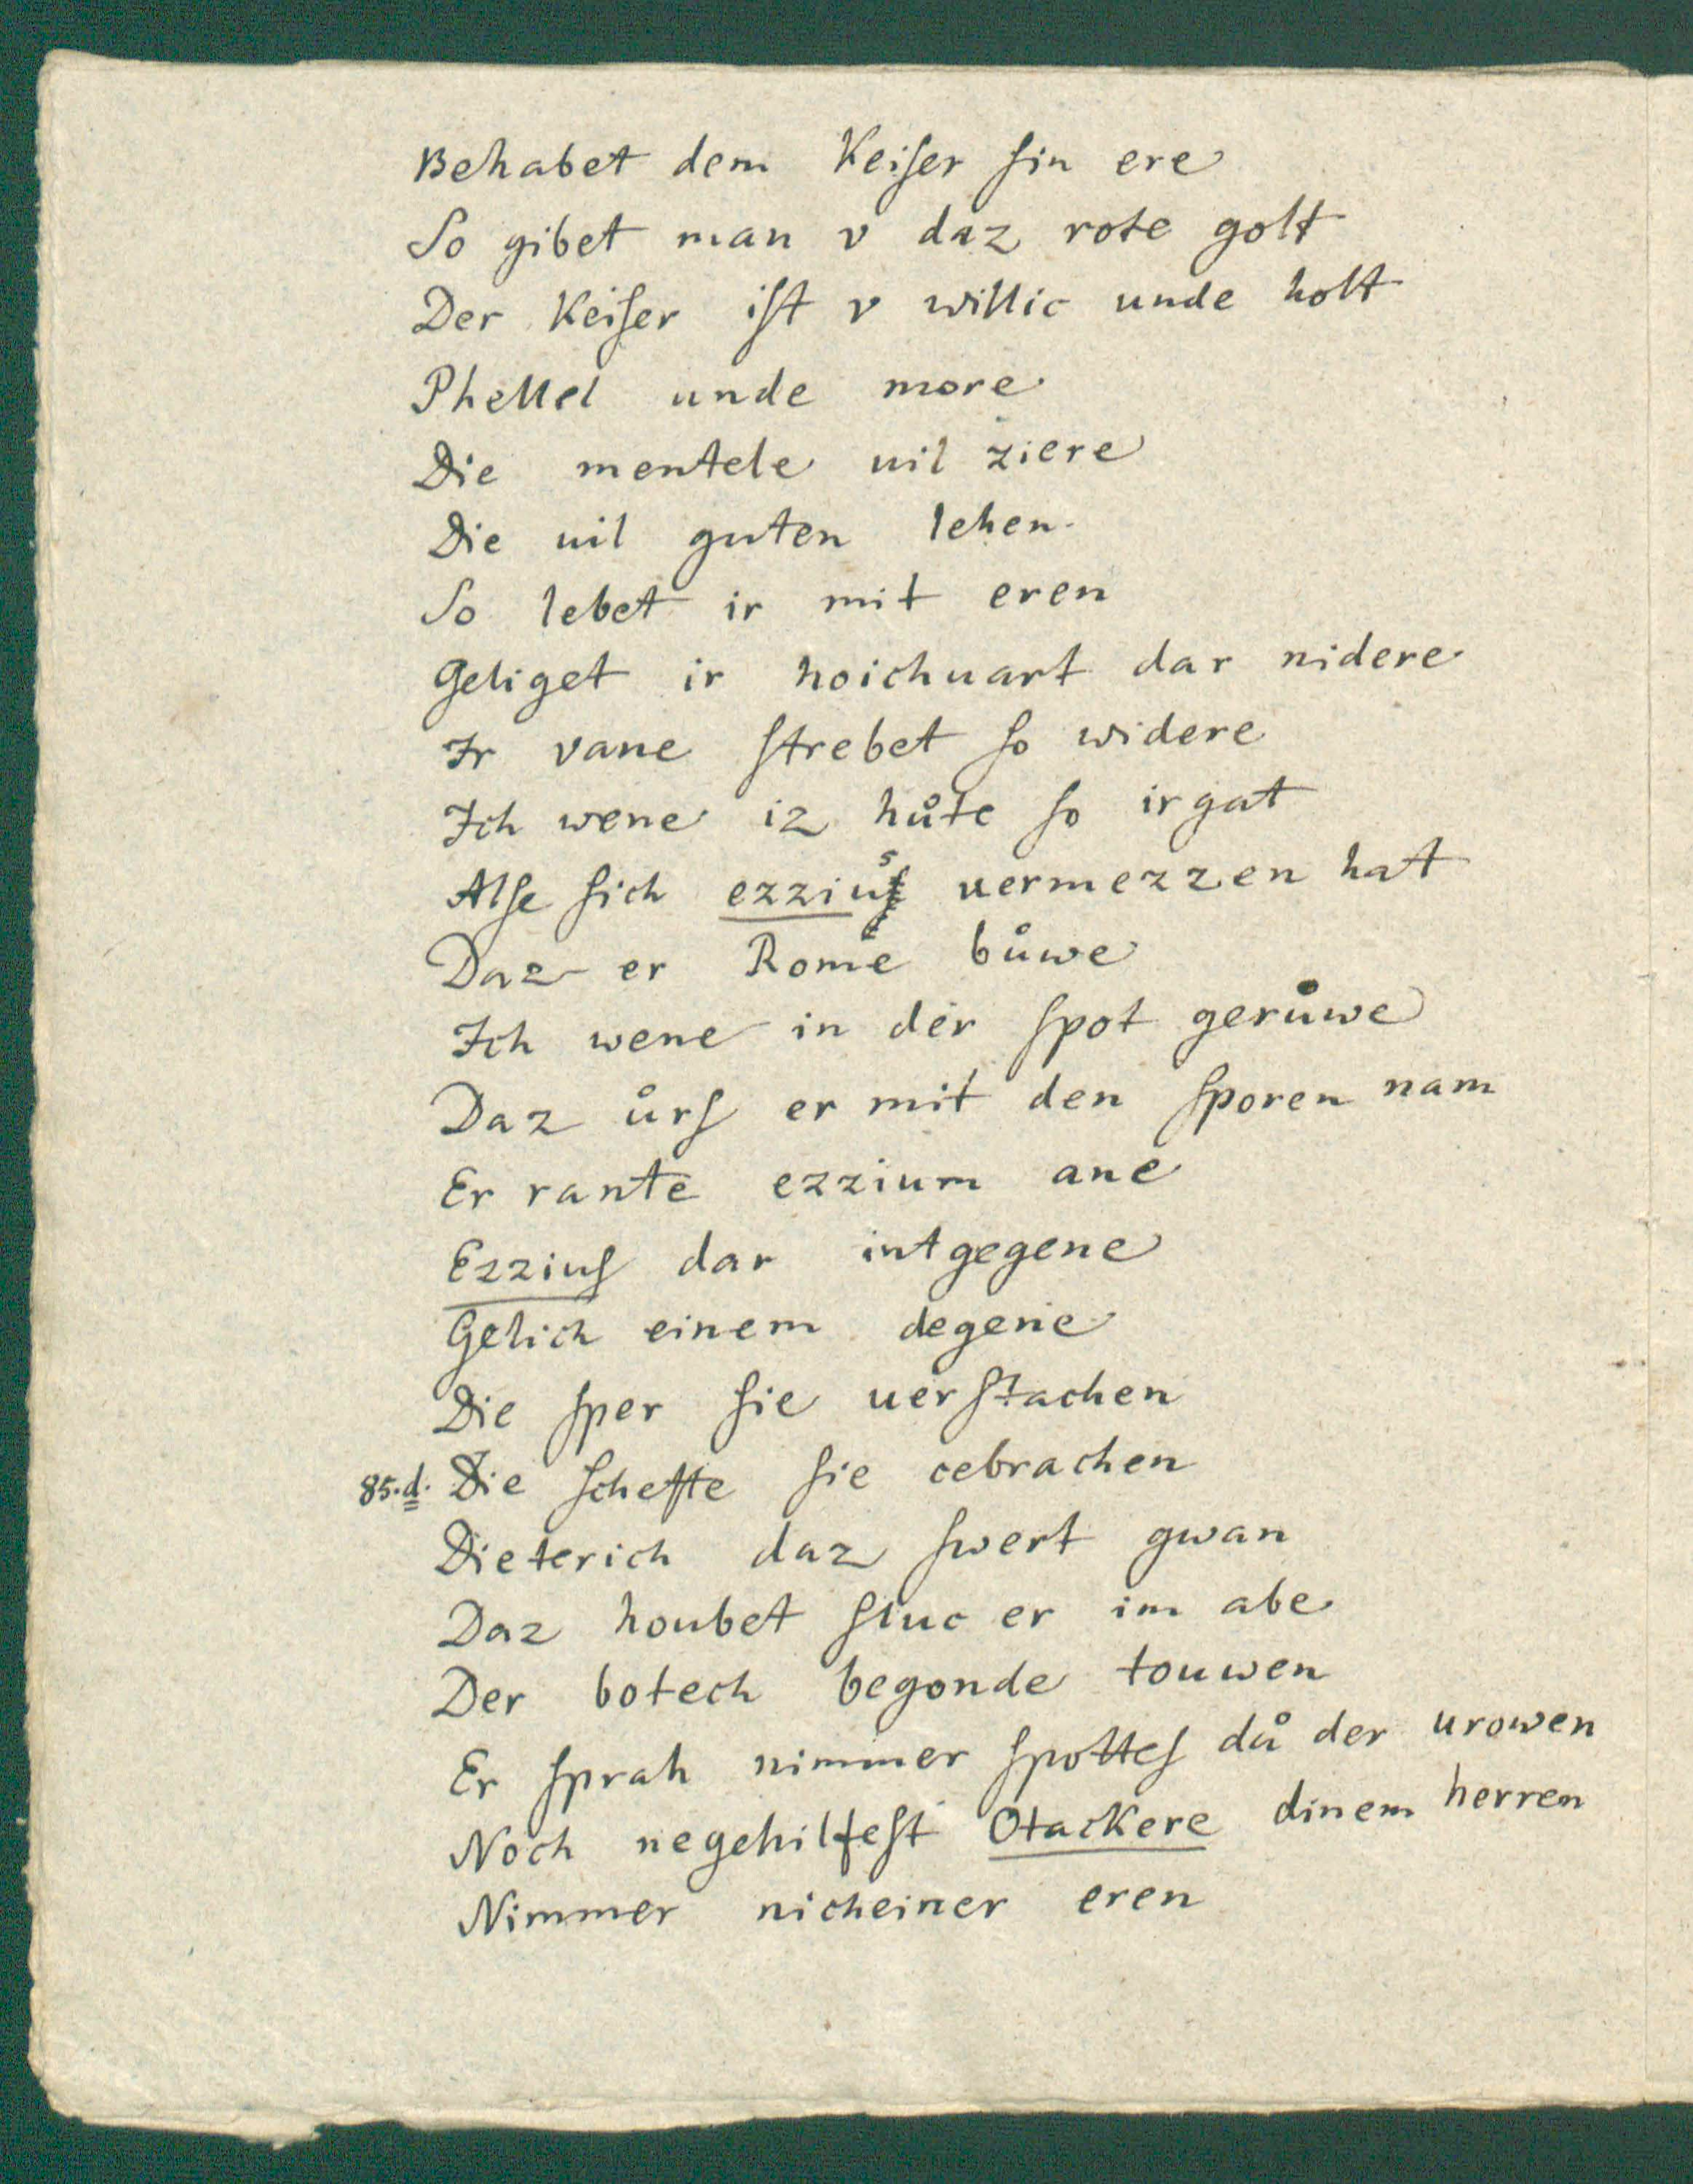 Behabet dem Keiſer ſin ere
So gibet man v daz rote golt
Der Keiſer iſt v willic unde holt
Phellel unde more
Die mentele uil ziere
Die uil guten lehen.
So lebet ir mit eren
Geliget ir hoichuart dar nidere
Ir vane ſtrebet ſo widere
Ich wene iz huͦte ſo irgat
Alſe ſich ezzius uermezzen hat
Daz er Rome buͦwe
Ich wene in der ſpot geruͦwe
Daz uͦrſ er mit den ſporen nam
Er rante ezzium ane
Ezziuſ dar intgegene
Gelich einem degene
Die ſper ſie uerſtachen
85.d. Die ſchefte ſie cebrachen
Dieterich daz ſwert gwan
Daz houbet ſluc er im abe
Der botech begonde touwen
Er ſprah nimmer ſpotteſ duͦ der urowen
Noch negehilfeſt Otackere dinem herren
Nimmer nicheiner eren